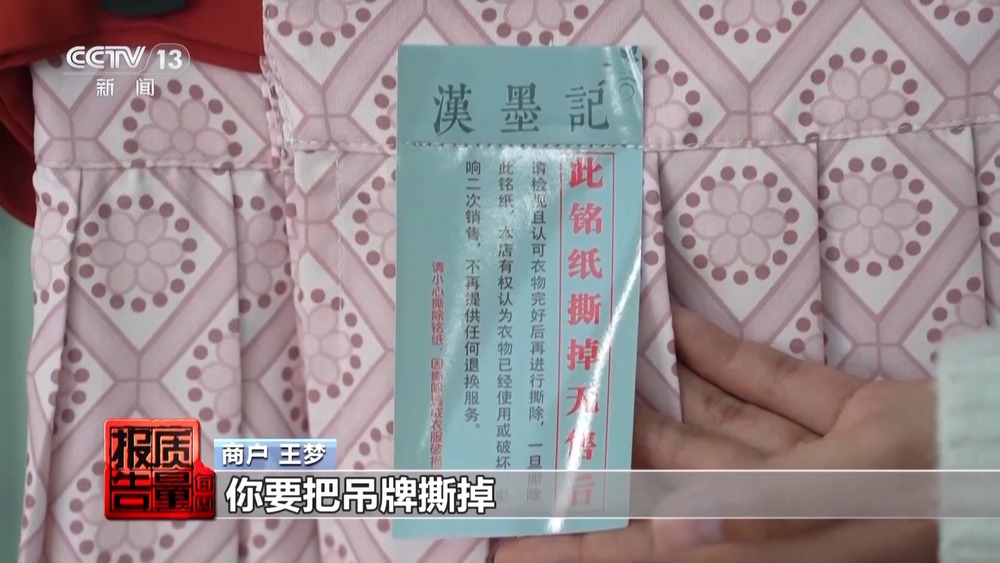 CCTV 13
新闻
漢墨記
此铭纸撕掉无售后
请检视且认可衣物完好后再进行撕除，一旦撕除
此铭纸，本店有权认为衣物已经使用或破坏
响二次销售，不再提供任何退换服务。
请小心撕除铭纸，因撕除造成衣服破损
商户 王梦
质量报告
你要把吊牌撕掉